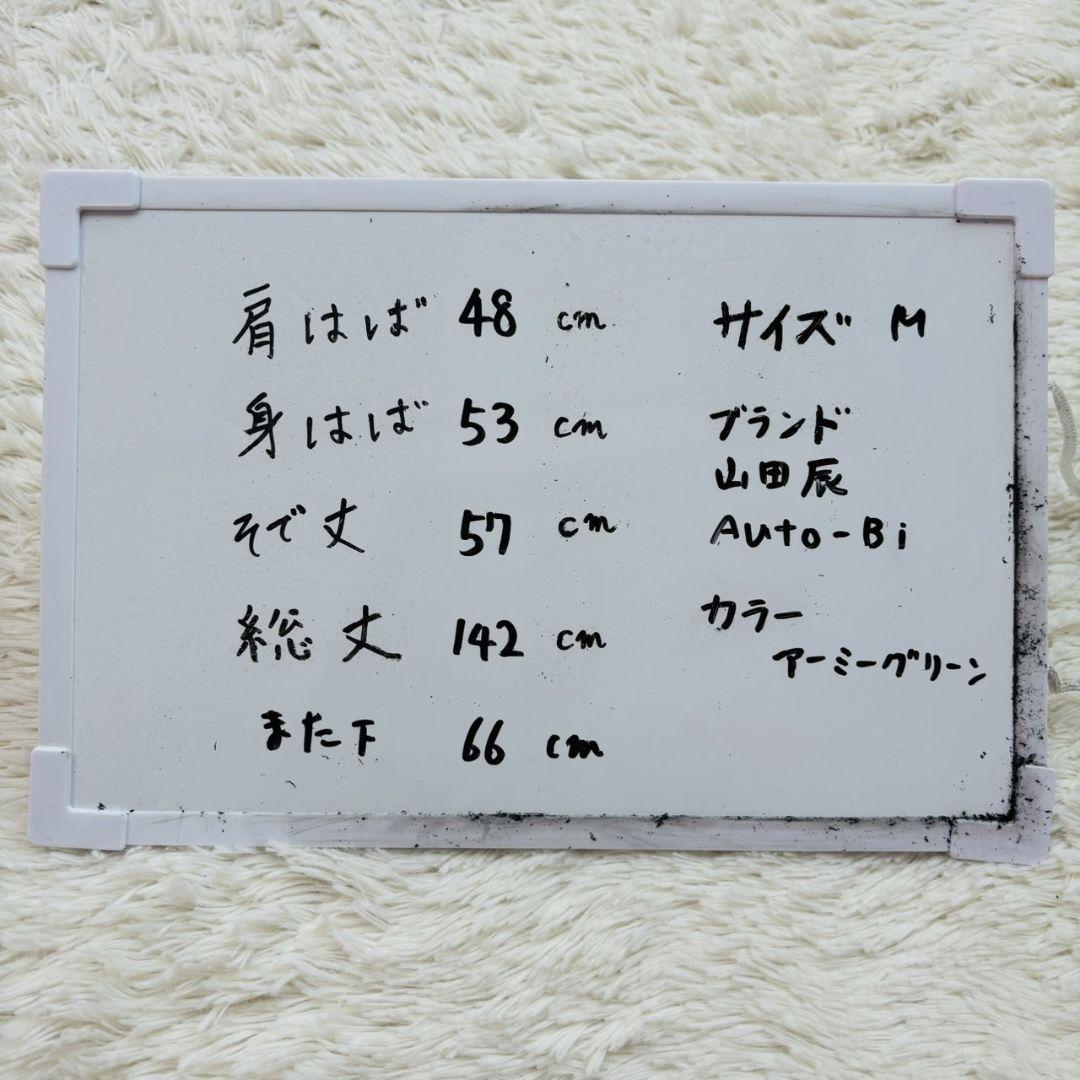 肩はば 48 cm
身はば 53 cm
そで丈 57 cm
総丈 142 cm
また下 66 cm
サイズ M
ブランド
山田辰
Auto-Bi
カラー
アーミーグリーン